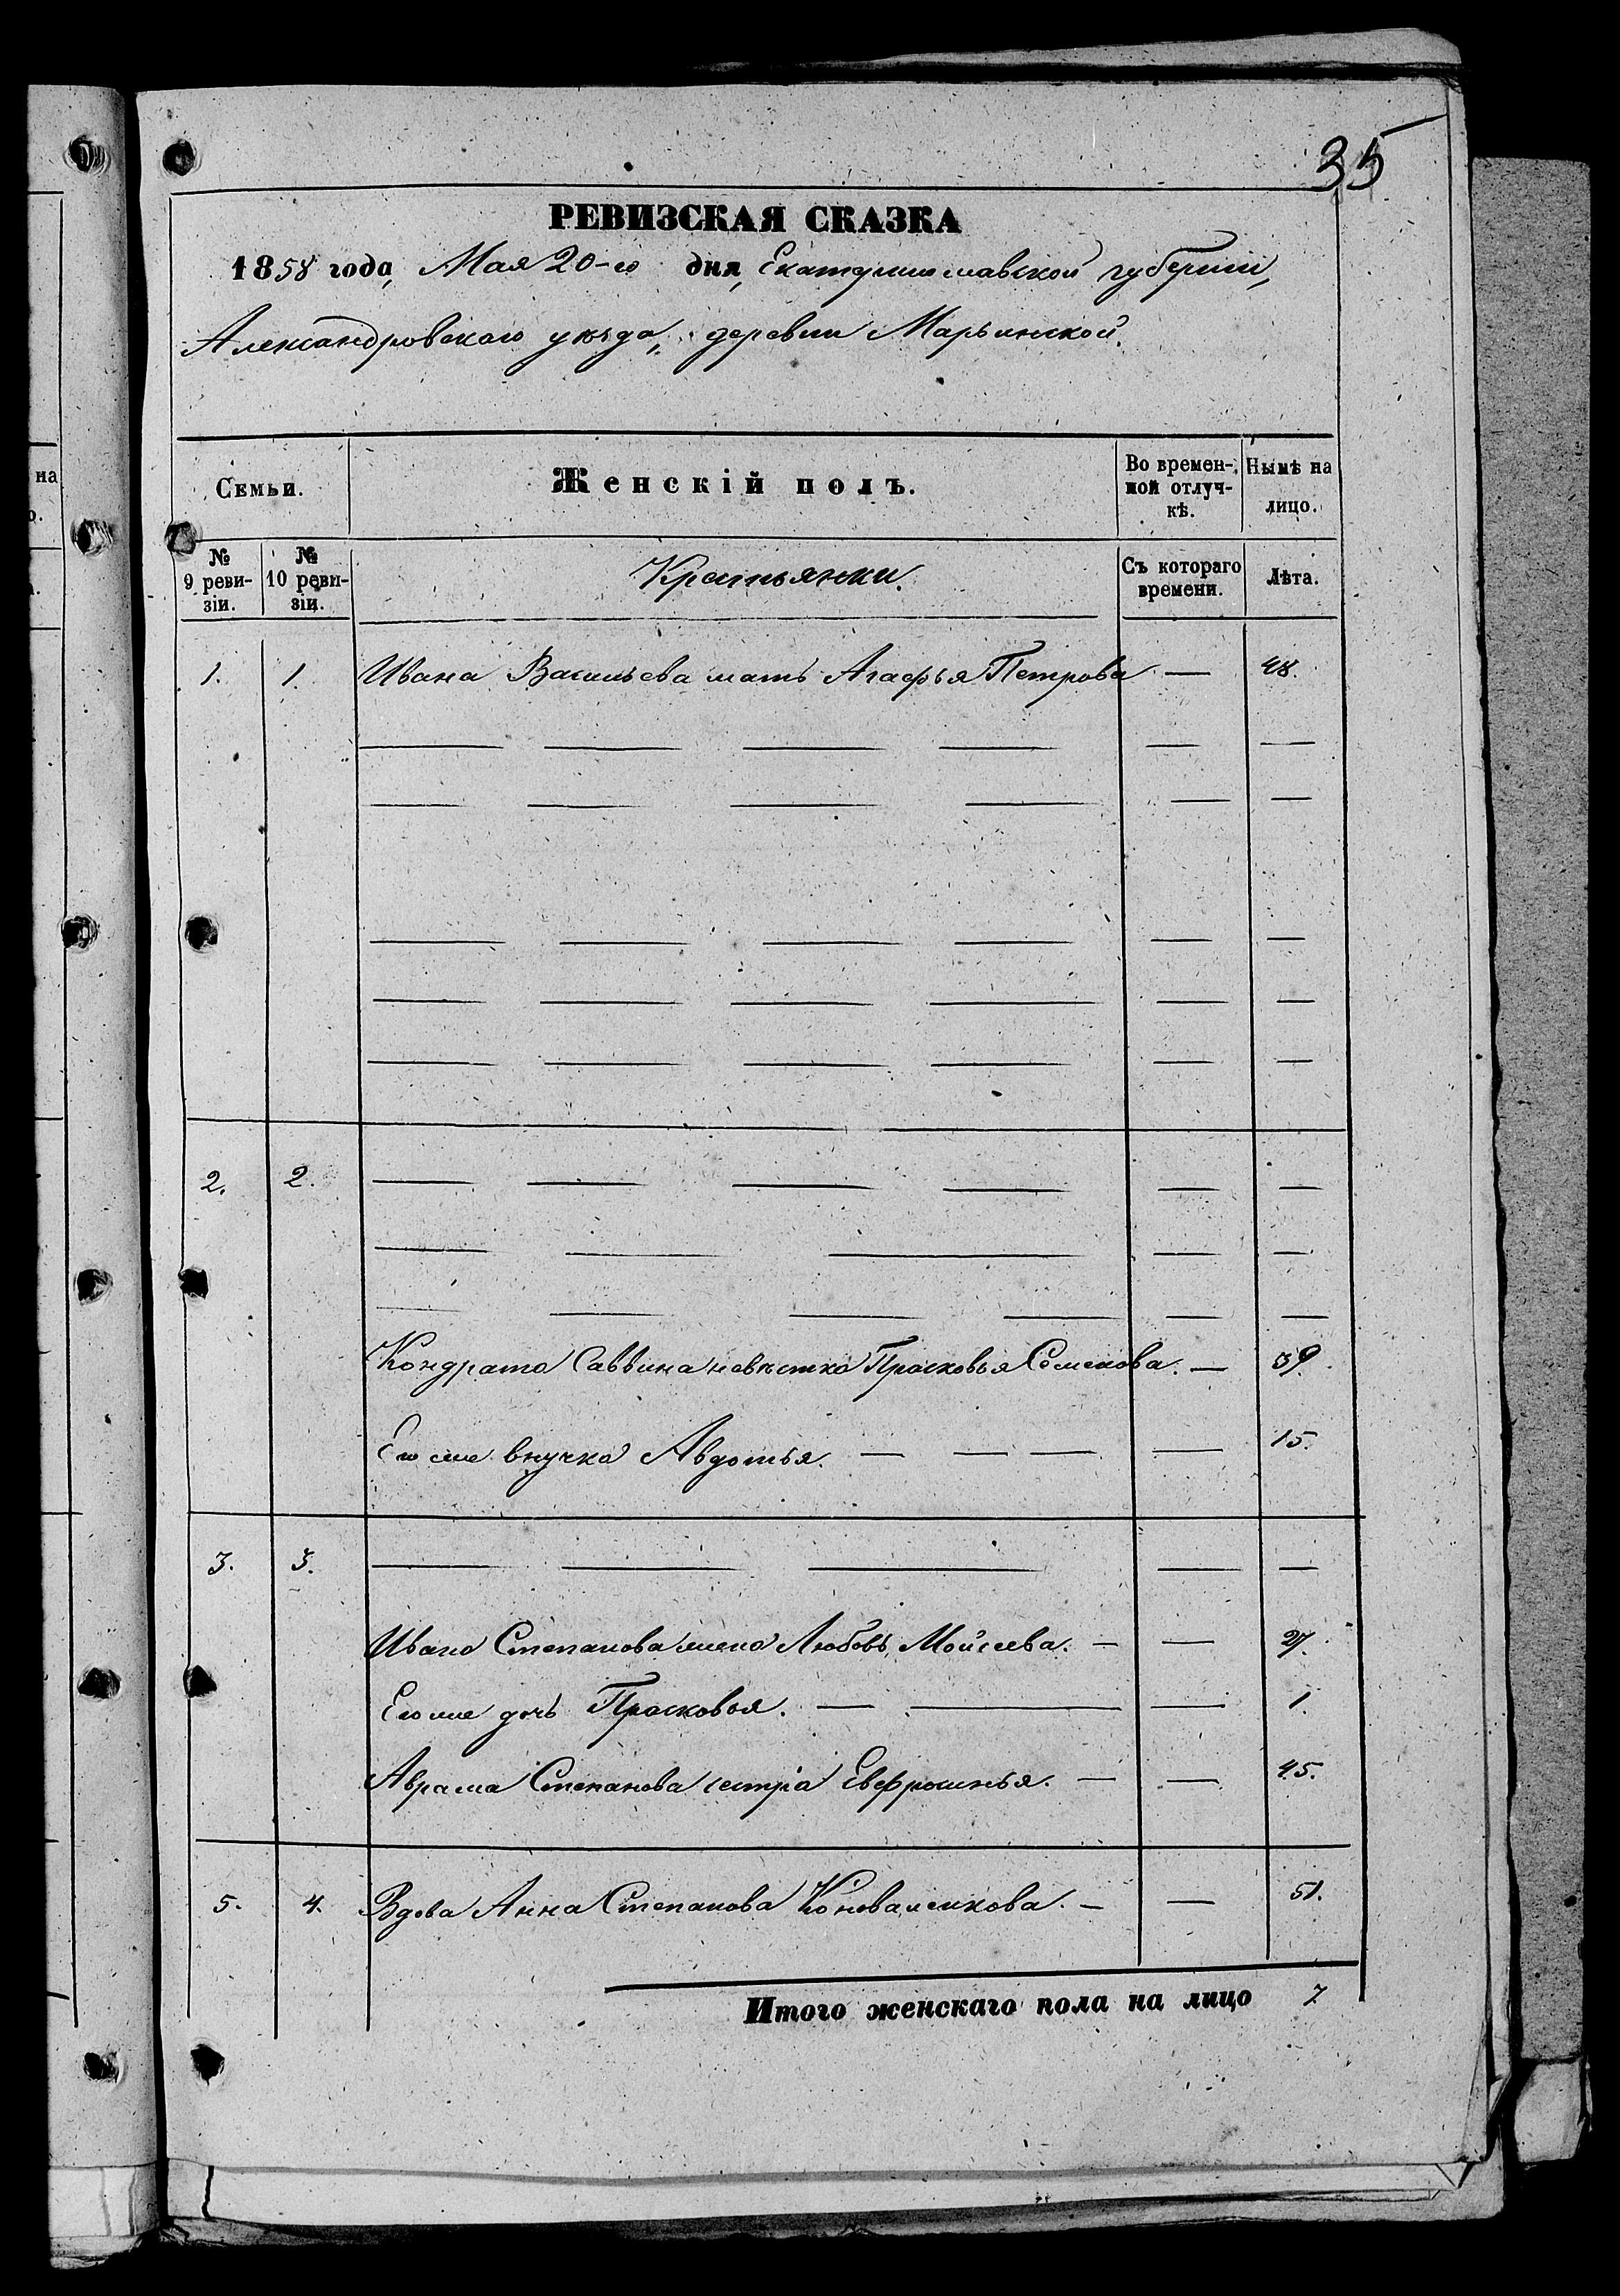 35
РЕВИЗСКАЯ СКАЗКА
1858 года, Мая 20-го дня, Екатеринославской губерніи,
Александровскаго уѣзда, деревни Марьинской.
на
о.
Семьи.
Женскій полъ.
Во времен-
ной отлуч-
кѣ.
Нынѣ на
лицо.
№
9 реви-
зіи.
№
10 реви-
зіи.
Крестьянки.
Съ котораго
времени.
Лѣта.
1. 1. Ивана Васильева мать Агафья Петрова — 48.
2. 2.
Кондрата Саввина невѣстка Прасковья Семенова. — 39.
Его же внучка Авдотья. — 15.
3. 3.
Ивана Степанова жена Любовь Мойсеева. — 27.
Его же дочь Прасковья. — 1.
Аврама Степанова сестра Евфросинья. — 45.
5. 4. Вдова Анна Степанова Коноваленкова. — 51.
Итого женскаго пола на лицо 7